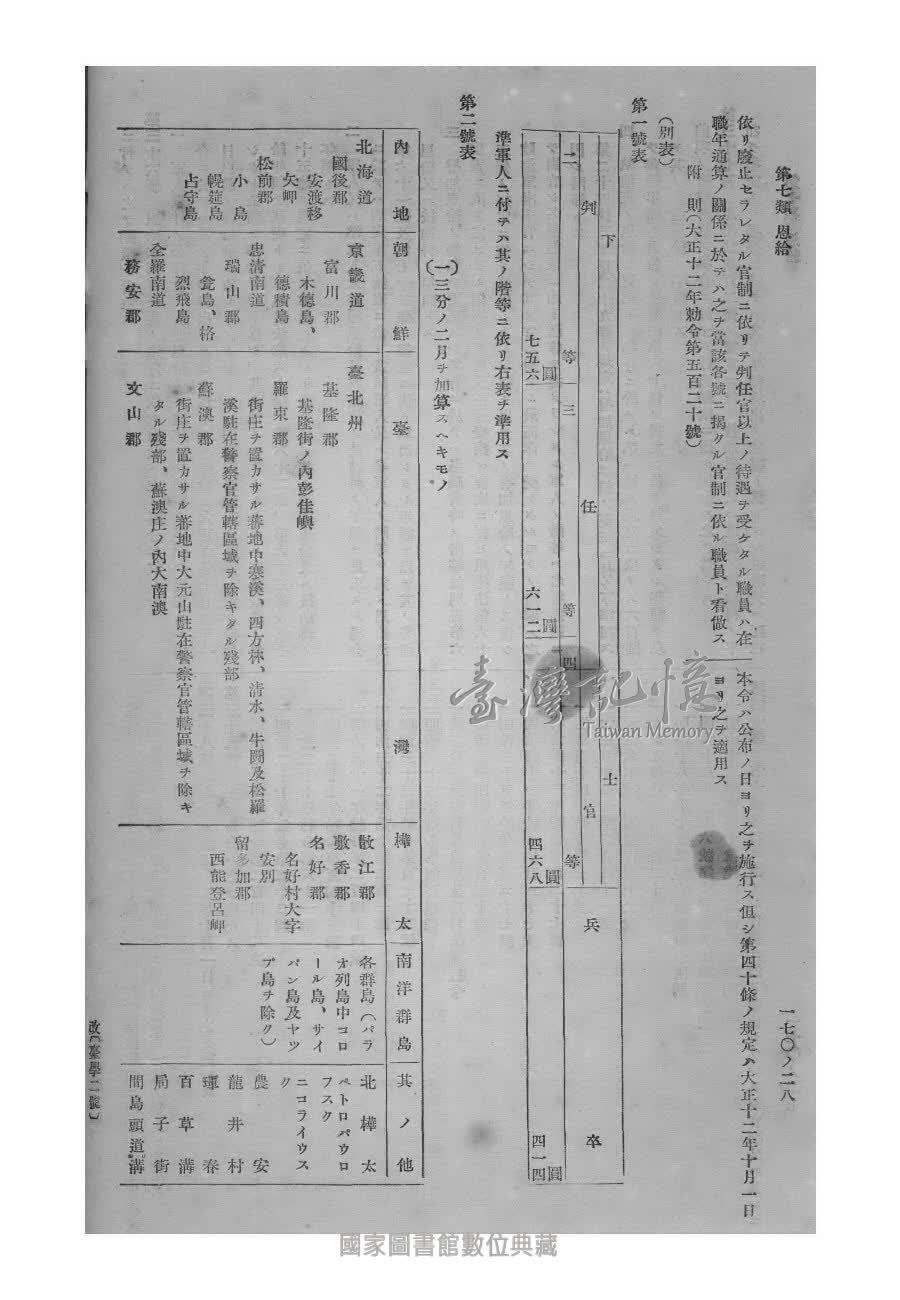 第七類 恩給
一七〇ノ二八
依リ廢止セラレタル官制ニ依リテ判任官以上ノ待遇ヲ受ケタル職員ハ在
職年通算ノ關係ニ於テハ之ヲ當該各號ニ揭クル官制ニ依ル職員ト看做ス
附則(大正十二年勅令第五百二十號)
本令ハ公布ノ日ヨリ之ヲ施行ス但シ第四十條ノ規定ハ大正十二年十月一日
ヨリ之ヲ適用ス
(別表)
第一號表
下士
兵卒
判任官
二等
三等
四等
七五六圓
六一二圓
四六八圓
四一四圓
準軍人ニ付テハ其ノ階等ニ依リ右表ヲ準用ス
第二號表
(一)三分ノ二月ヲ加算スヘキモノ
內地
朝鮮
臺灣
樺太
南洋群島
其ノ他
北海道
國後郡
安渡移
矢岬
松前郡
小島
幌筵島
占守島
京畿道
富川郡
木德島、
德積島
忠清南道
瑞山郡
瓮島、格
烈飛島
全羅南道
務安郡
臺北州
基隆郡
基隆街ノ內彭佳嶼
羅東郡
街庄ヲ置カサル蕃地中寒溪、四方林、清水、牛鬪及松羅
溪駐在警察官管轄區域ヲ除キタル殘部
蘇澳郡
街庄ヲ置カサル蕃地中大元山駐在警察官管轄區域ヲ除キ
タル殘部、蘇澳庄ノ內大南澳
文山郡
散江郡
敷香郡
名好郡
名好村大字
安別
留多加郡
西能登呂岬
各群島(パラ
オ列島中コロ
ール島、サイ
パン島及ヤツ
プ島ヲ除ク)
北樺太
ペトロパウロ
フスク
ニコライウス
ク
農安
龍井村
琿春
百草溝
局子街
間島頭道溝
改(臺學二號)
臺灣記憶
Taiwan Memory
國家圖書館數位典藏